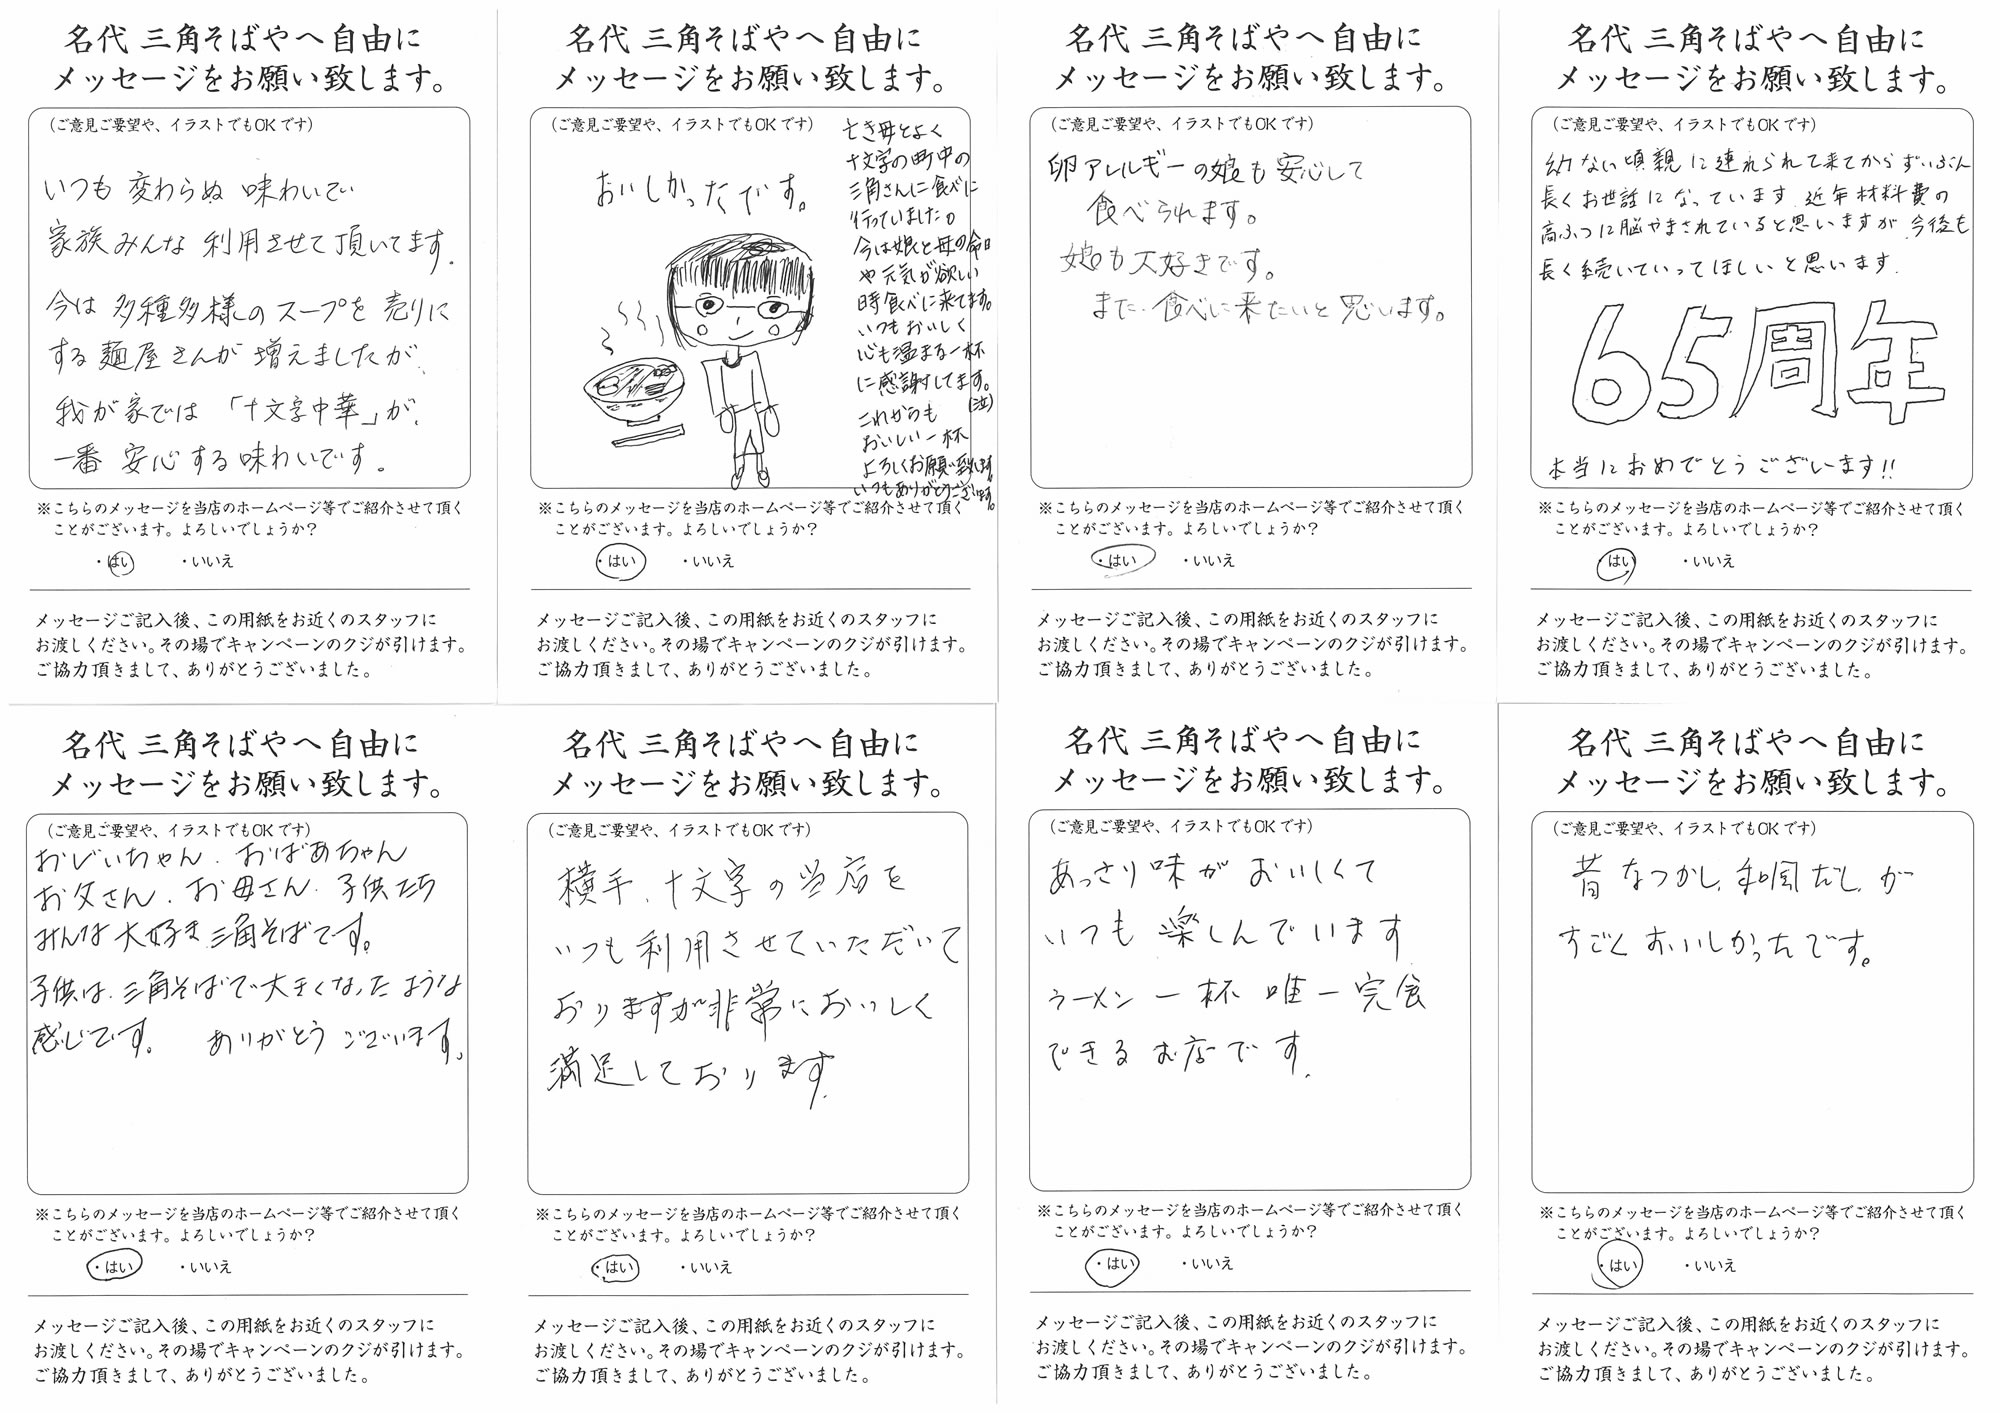 名代 三角そばやへ自由に
メッセージをお願い致します。
(ご意見ご要望や、イラストでもOKです)
いつも 変わらぬ 味わいで
家族みんな 利用させて頂いてます。
今は 多種多様のスープを 売りに
する麺屋さんが 増えましたが、
我が家では 「十文字中華」が、
一番 安心する味わいです。
※こちらのメッセージを当店のホームページ等でご紹介させて頂く
ことがございます。よろしいでしょうか?
・はい ・いいえ
メッセージご記入後、この用紙をお近くのスタッフに
お渡しください。その場でキャンペーンのクジが引けます。
ご協力頂きまして、ありがとうございました。
名代 三角そばやへ自由に
メッセージをお願い致します。
(ご意見ご要望や、イラストでもOKです)
おいしかったです。
亡き母とよく
十文字の町中の
三角さんに食べに
行っていました。
今は娘と母の命日
や元気が欲しい
時食べに来てます。
いつもおいしく
心も温まる一杯
に感謝してます。
(泣)
これからも
おいしい一杯
よろしくお願い致します。
いつもありがとうございます。
※こちらのメッセージを当店のホームページ等でご紹介させて頂く
ことがございます。よろしいでしょうか?
・はい ・いいえ
メッセージご記入後、この用紙をお近くのスタッフに
お渡しください。その場でキャンペーンのクジが引けます。
ご協力頂きまして、ありがとうございました。
名代 三角そばやへ自由に
メッセージをお願い致します。
(ご意見ご要望や、イラストでもOKです)
卵アレルギーの娘も安心して
食べられます。
娘も大好きです。
また、食べに来たいと思います。
※こちらのメッセージを当店のホームページ等でご紹介させて頂く
ことがございます。よろしいでしょうか?
・はい ・いいえ
メッセージご記入後、この用紙をお近くのスタッフに
お渡しください。その場でキャンペーンのクジが引けます。
ご協力頂きまして、ありがとうございました。
名代 三角そばやへ自由に
メッセージをお願い致します。
(ご意見ご要望や、イラストでもOKです)
幼ない頃親に連れられて来てからずいぶん
長くお世話になっています。近年材料費の
高ふつに脳やまされていると思いますが、今後も
長く続いていってほしいと思います。
65周年
本当におめでとうございます!!
※こちらのメッセージを当店のホームページ等でご紹介させて頂く
ことがございます。よろしいでしょうか?
・はい ・いいえ
メッセージご記入後、この用紙をお近くのスタッフに
お渡しください。その場でキャンペーンのクジが引けます。
ご協力頂きまして、ありがとうございました。
名代 三角そばやへ自由に
メッセージをお願い致します。
(ご意見ご要望や、イラストでもOKです)
おじいちゃん、おばあちゃん
お父さん、お母さん、子供たち
みんな大好き三角そばです。
子供は、三角そばで大きくなったような
感じです。 ありがとうございます。
※こちらのメッセージを当店のホームページ等でご紹介させて頂く
ことがございます。よろしいでしょうか?
・はい ・いいえ
メッセージご記入後、この用紙をお近くのスタッフに
お渡しください。その場でキャンペーンのクジが引けます。
ご協力頂きまして、ありがとうございました。
名代 三角そばやへ自由に
メッセージをお願い致します。
(ご意見ご要望や、イラストでもOKです)
横手、十文字の当店を
いつも利用させていただいて
おりますが非常においしく
満足しております。
※こちらのメッセージを当店のホームページ等でご紹介させて頂く
ことがございます。よろしいでしょうか?
・はい ・いいえ
メッセージご記入後、この用紙をお近くのスタッフに
お渡しください。その場でキャンペーンのクジが引けます。
ご協力頂きまして、ありがとうございました。
名代 三角そばやへ自由に
メッセージをお願い致します。
(ご意見ご要望や、イラストでもOKです)
あっさり味が おいしくて
いつも 楽しんでいます
ラーメン一杯 唯一完食
できるお店です。
※こちらのメッセージを当店のホームページ等でご紹介させて頂く
ことがございます。よろしいでしょうか?
・はい ・いいえ
メッセージご記入後、この用紙をお近くのスタッフに
お渡しください。その場でキャンペーンのクジが引けます。
ご協力頂きまして、ありがとうございました。
名代 三角そばやへ自由に
メッセージをお願い致します。
(ご意見ご要望や、イラストでもOKです)
昔なつかし、和風だしが
すごくおいしかったです。
※こちらのメッセージを当店のホームページ等でご紹介させて頂く
ことがございます。よろしいでしょうか?
・はい ・いいえ
メッセージご記入後、この用紙をお近くのスタッフに
お渡しください。その場でキャンペーンのクジが引けます。
ご協力頂きまして、ありがとうございました。